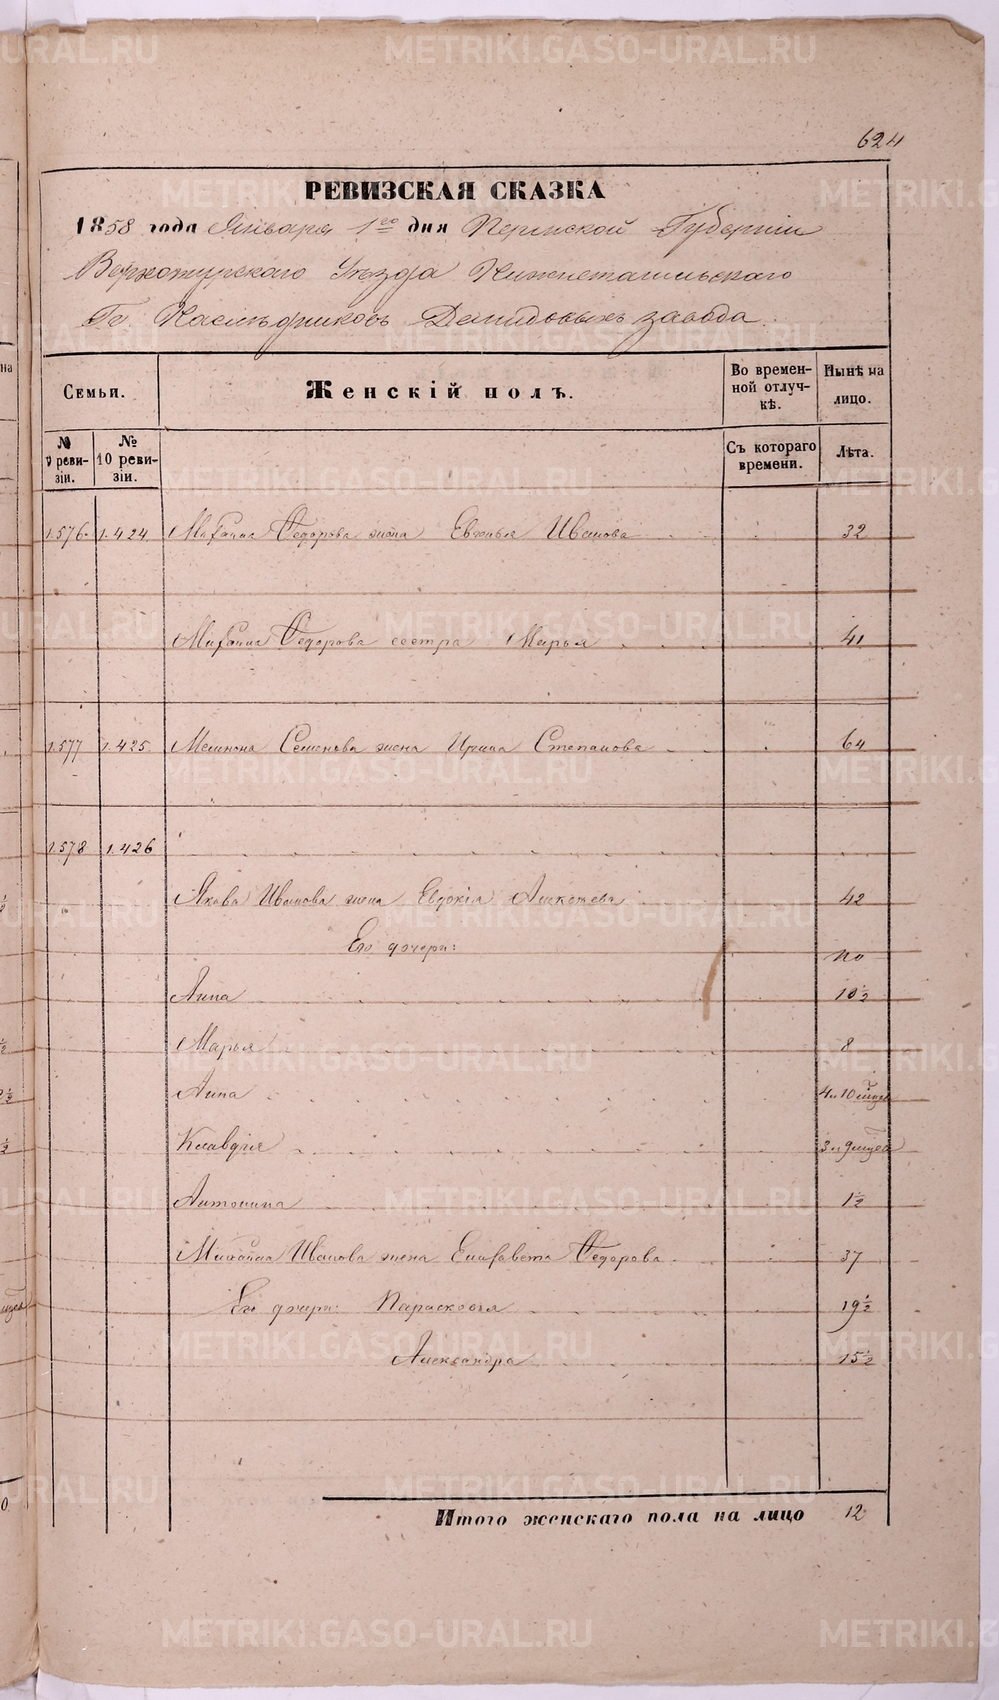 624
РЕВИЗСКАЯ СКАЗКА
1858 года Января 1го дня Пермской Губерніи
Верхотурскаго Уѣзда Нижнетагильскаго
Гг. Наслѣдниковъ Демидовыхъ завода.
Семьи.
Женскій полъ.
Во времен-
ной отлуч-
кѣ.
Нынѣ на
лицо.
№
9 реви-
зіи.
№
10 реви-
зіи.
Съ котораго
времени.
Лѣта.
1.576. 1.424 Михаила Федорова жена Евгенья Иванова 32
Михаила Федорова сестра Марья 41
1.577 1.425. Семенова жена Ирина Степанова 64
1.578 1.426
Якова Иванова жена Евдокія Алексѣева 42
Его дочери: по
Анна 10½
Марья 8
Анна 4 и 10 мцов
Клавдія 3 и 9 мцов
Антонина 1½
Михайла Иванова жена Елисавета Федорова 37
Его дочери: Парасковья 19½
Александра 15½
Итого женскаго пола на лицо 12
METRIKI.GASO-URAL.RU